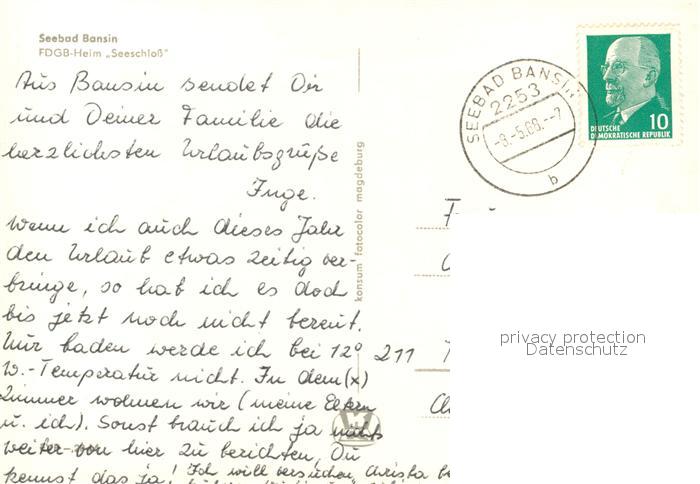 Seebad Bansin
FDGB-Heim „Seeschloß"
Aus Bansin sendet Dir
und Deiner Familie die
herzlichsten Urlaubsgrüße
Inge.
Wenn ich auch dieses Jahr
den Urlaub etwas zeitig ver-
bringe, so hab ich es doch
bis jetzt noch nicht bereut.
Nur baden werde ich bei 12°
W.-Temperatur nicht. In dem (x)
Zimmer wohnen wir (meine Eltern
u. ich). Sonst brauch ich ja nichts
weiter von hier zu berichten, Du
kennst das ja! Ich will versuchen, Christa
konsum fotocolor magdeburg
SEEBAD BANSIN
2253
-8.-5.68.--7
b
DEUTSCHE
DEMOKRATISCHE REPUBLIK
10
211
privacy protection
Datenschutz